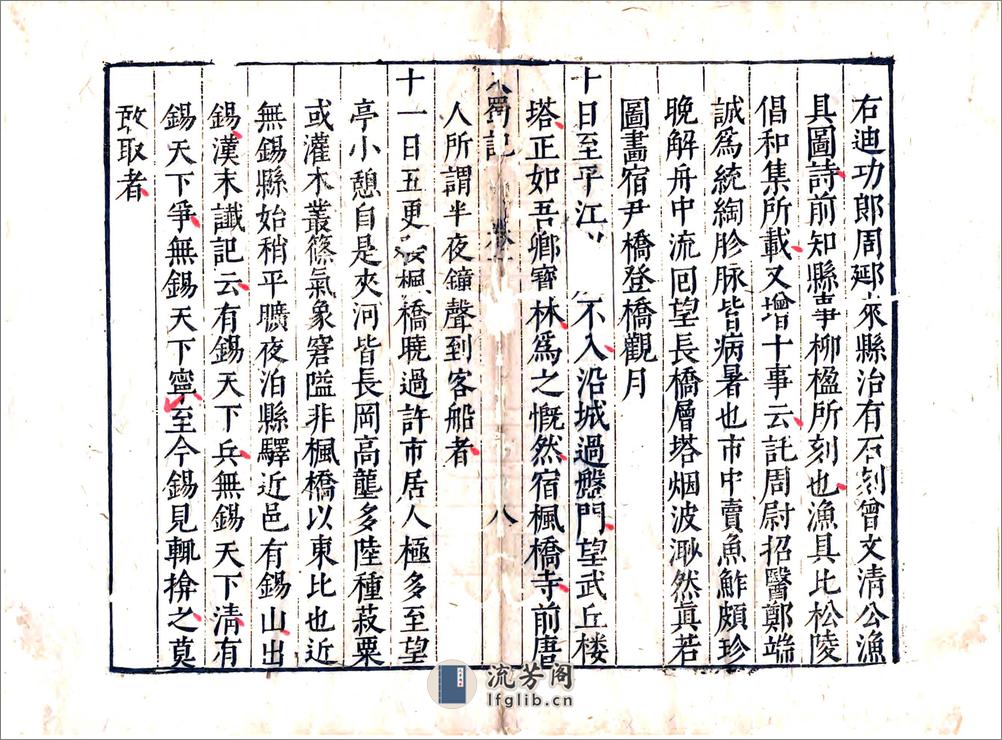 右迪功郎周郔來縣治有石刻曾文清公漁
具圖詩前知縣事柳楹所刻也漁具比松陵
倡和集所載又增十事云託周尉招醫鄭端
誠爲統綯胗脉皆病暑也市中賣魚鮓頗珍
晚解舟中流回望長橋層塔烟波渺然真若
圖畫宿尹橋登橋觀月
十日至平江 不入沿城過盤門望武丘楼
塔正如吾鄉寳林爲之慨然宿楓橋寺前唐
蜀記 卷一 八
人所謂半夜鐘聲到客船者
十一日五更 楓橋曉過許市居人極多至望
亭小憩自是夾河皆長岡高壟多陸種菽粟
或灌木叢篠氣象窘隘非楓橋以東比也近
無錫縣始稍平曠夜泊縣驛近邑有錫山出
錫漢末讖記云有錫天下兵無錫天下清有
錫天下爭無錫天下寧至今錫見輒揜之莫
敢取者
流芳阁
lfglib.cn